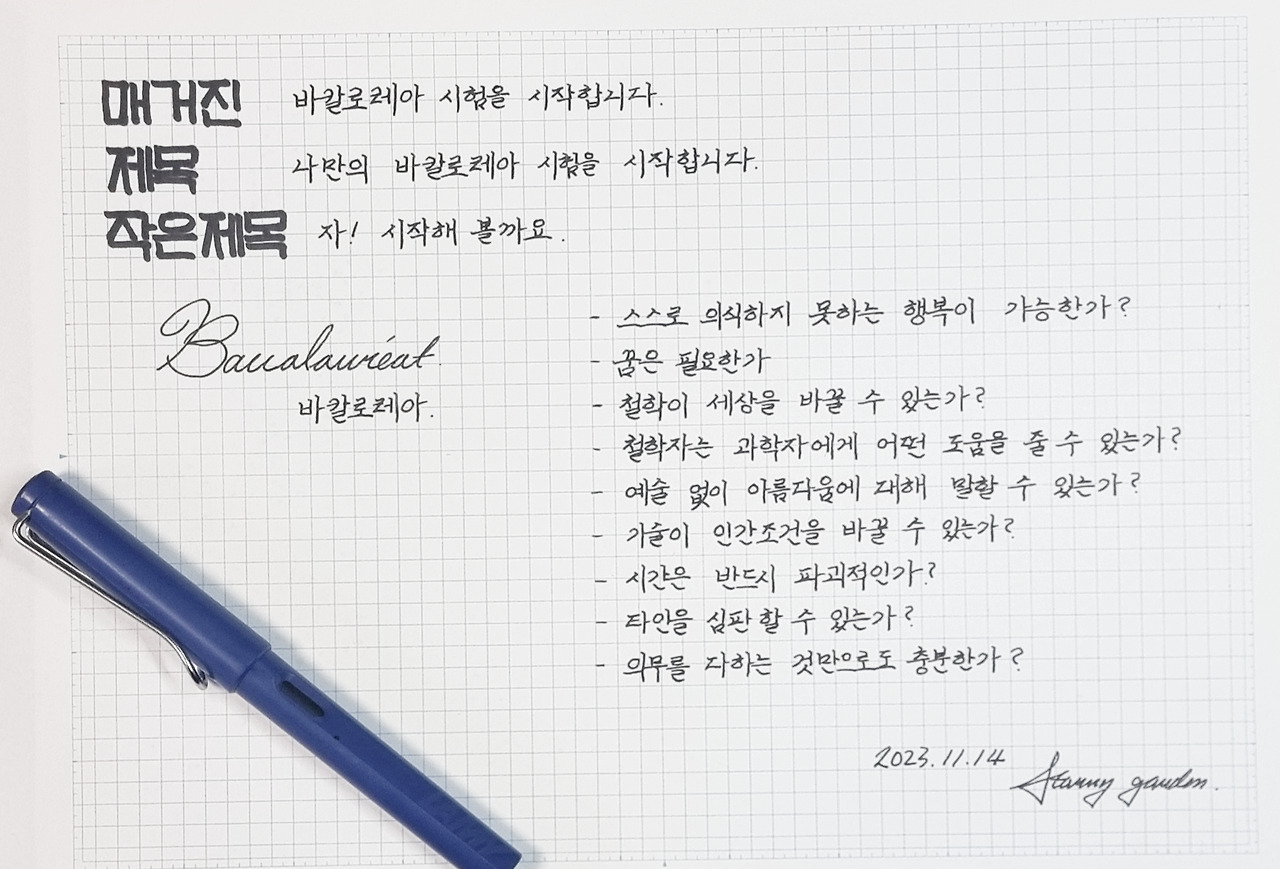 매거진 바칼로레아 시험을 시작합니다.
제목 나만의 바칼로레아 시험을 시작합니다.
작은제목 자! 시작해 볼까요.
Baccalauréat.
바칼로레아.
- 스스로 의식하지 못하는 행복이 가능한가?
- 꿈은 필요한가
- 철학이 세상을 바꿀 수 있는가?
- 철학자는 과학자에게 어떤 도움을 줄 수 있는가?
- 예술 없이 아름다움에 대해 말할 수 있는가?
- 기술이 인간조건을 바꿀 수 있는가?
- 시간은 반드시 파괴적인가?
- 타인을 심판할 수 있는가?
- 의무를 다하는 것만으로도 충분한가?
2023.11.14